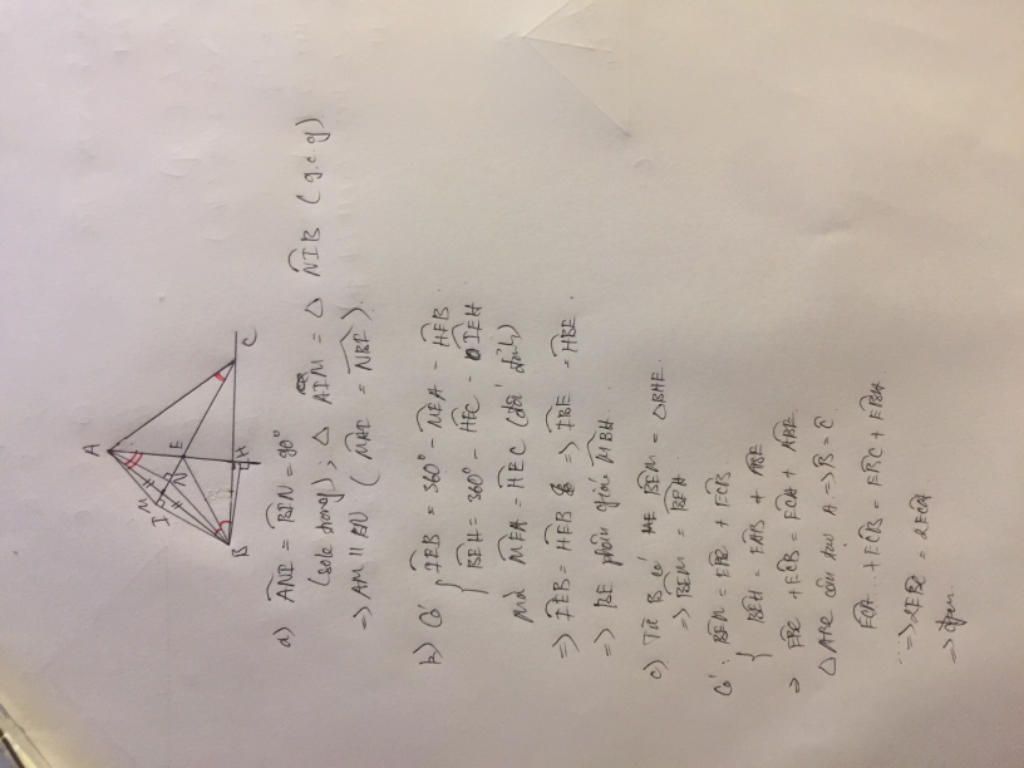 A
M
I
N
E
B
H
C
a) ANI = BIN = 90°
(sole trong); Δ AIM = Δ NIB (g.c.g)
=> AM || BN (MAE = NBE)
b) Có { IEB = 360° - MEA - HEB
BEH = 360° - HEC - IEH
mà MEA = HEC (đối đỉnh)
=> IEB = HEB => IBE = HBE
=> BE phân giác MBH.
c) Từ B có BEM = ΔBHE
=> BEM = BEH
Có: { BEM = EBC + ECB
BEH = EAB + ABE
=> EBC + ECB = EAB + ABE
Δ ABC cân tại A => B = C
+ ECB = EBC + EBA
=> 2EBC = 2ECA
=> đpcm